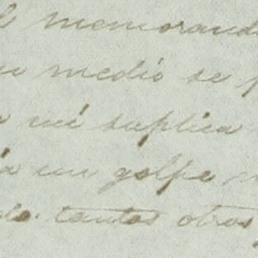 memorand
medio se
mi suplica
un golpe
tantos otros